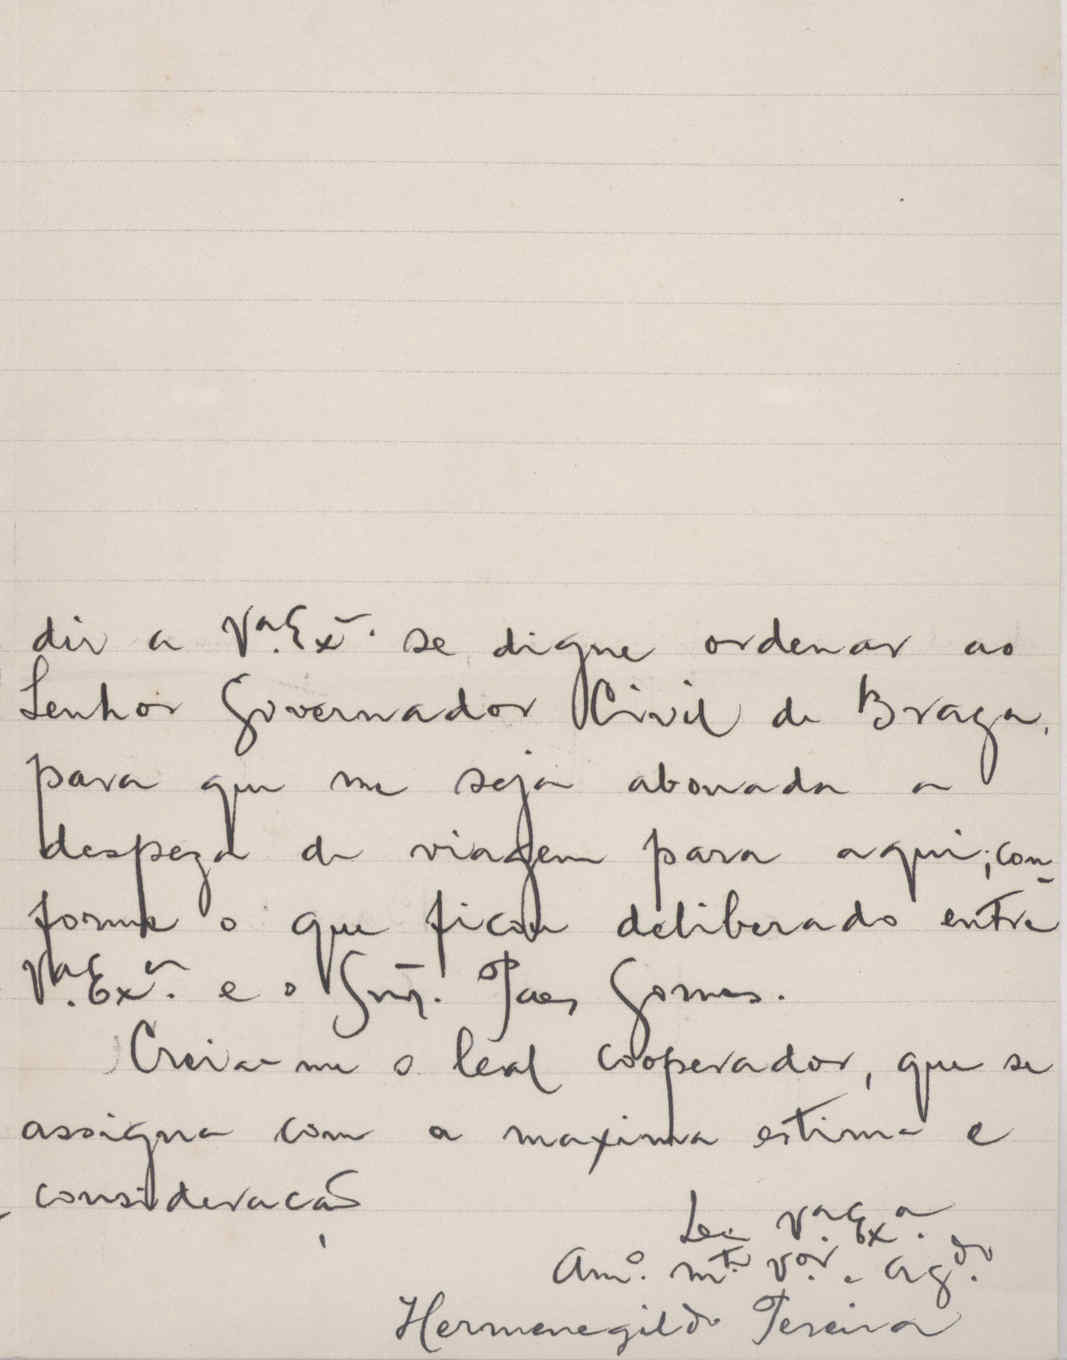 dir a V.ª Ex.ª se digne ordenar ao
Senhor Governador Civil de Braga,
para que me seja abonada a
despeza de viagem para aqui; con-
forme o que ficou deliberado entre
V.ª Ex.ª e o Snr. Paes Gomes.
Creia-me o leal cooperador, que se
assigna com a maxima estima e
consideração
De V.ª Ex.ª
Am.º m.to V.or e Ag.do
Hermenegildo Pereira